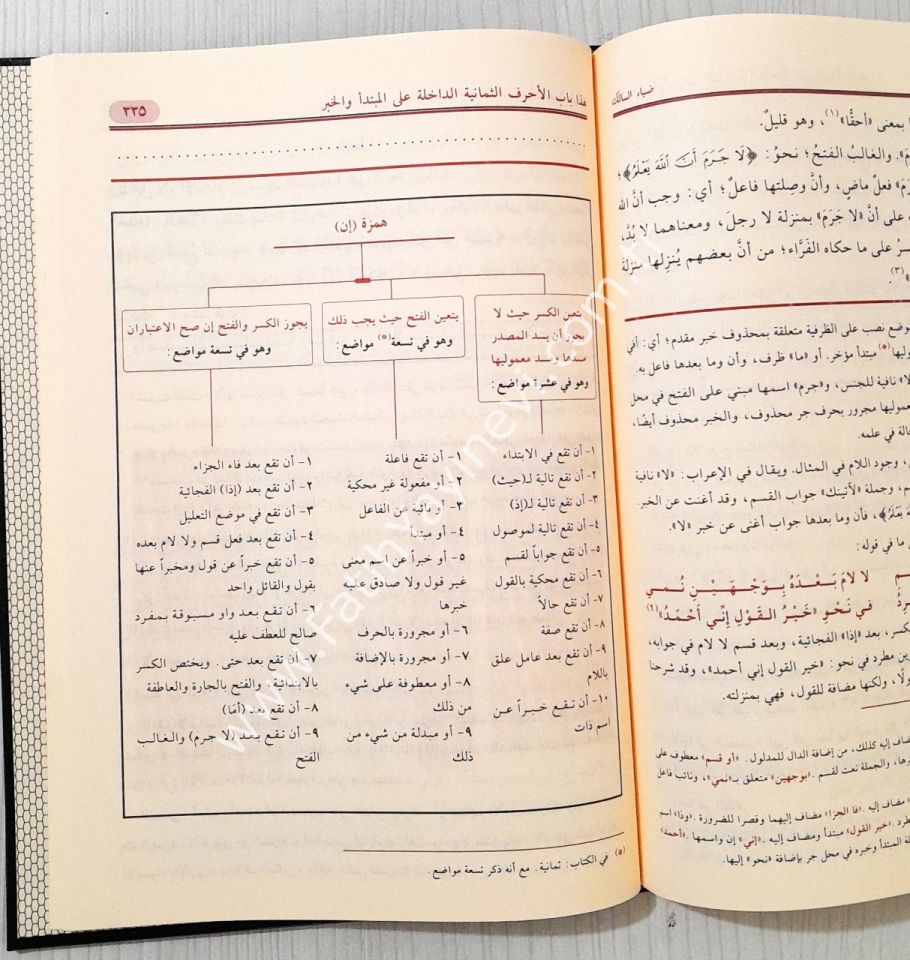 ضياء السالك
ا بمعنى «أحقًّا»(١)، وهو قليلٌ.
والغالب الفتحُ؛ نحوُ: ﴿لَا جَرَمَ أَنَّ ٱللَّهَ يَعْلَمُ﴾؛
فعلٌ ماضٍ، وأنَّ وصِلتها فاعلٌ؛ أي: وجب أنَّ الله
على أنَّ «لا جَرَمَ» بمنزلة لا رجلَ، ومعناهما لا بُدَّ،
على ما حكاه الفَرَّاء؛ من أنَّ بعضهم يُنزلها منزلةَ
(٣)
موضع نصب على الظرفية متعلقة بمحذوف خبر مقدم؛ أي: أفي
مبتدأ مؤخر. أو «ما» ظرف، وأن وما بعدها فاعل به.
«لا» نافية للجنس، و«جرم» اسمها مبني على الفتح في محل
معموليها مجرور بحرف جر محذوف، والخبر محذوف أيضًا،
في علمه.
وجود اللام في المثال. ويقال في الإعراب: «لا» نافية
وجملة «لآتينك» جواب القسم، وقد أغنت عن الخبر.
فأن وما بعدها جواب أغنى عن خبر «لا».
ما في قوله:
لا لامَ بَعْدَهُ بِوَجْهَيْنِ نُمي
في نَحْوِ «خَيْرُ القَوْلِ إِنِّي أَحْمَدُ»(١)
بعد «إذا» الفجائية، وبعد قسم لا لام في جوابه،
مطرد في نحو: «خير القول إني أحمد»، وقد شرحنا
ولكنها مضافة للقول، فهي بمنزلته.
إليه كذلك، من إضافة الدال للمدلول. «أو قسم» معطوف على
والجملة نعت لقسم. «بوجهين» متعلق بـ«نمي»، ونائب فاعل
مضاف إليه. «فا الجزا» مضاف إليهما وقصرا للضرورة. «وذا» اسم
«خير القول» مبتدأ ومضاف إليه. «إني» إن واسمها. «أحمد»
المبتدأ وخبره في محل جر بإضافة «نحو» إليها.
هذا باب الأحرف الثمانية الداخلة على المبتدأ والخبر
٣٣٥
همزة (إن)
يتعن الكسر حيث لا
يجوز أن يسد المصدر
مسدها ومسد معموليها
وهو في عشرة مواضع:
١- أن تقع في الابتداء
٢- أن تقع تالية لـ(حيث)
٣- أن تقع تالية لـ(إذ)
٤- أن تقع تالية لموصول
٥- أن تقع جواباً لقسم
٦- أن تقع محكية بالقول
٧- أن تقع حالاً
٨- أن تقع صفة
٩- أن تقع بعد عامل علق
باللام
١٠- أن تقع خبراً عن
اسم ذات
يتعين الفتح حيث يجب ذلك
وهو في تسعة(*) مواضع:
١- أن تقع فاعلة
٢- أو مفعولة غير محكية
٣- أو نائبة عن الفاعل
٤- أو مبتدأ
٥- أو خبراً عن اسم معنى
غير قول ولا صادق عليه
خبرها
٦- أو مجرورة بالحرف
٧- أو مجرورة بالإضافة
٨- أو معطوفة على شيء
من ذلك
٩- أو مبدلة من شيء من
ذلك
يجوز الكسر والفتح إن صح الاعتباران
وهو في تسعة مواضع:
١- أن تقع بعد فاء الجزاء
٢- أن تقع بعد (إذا) الفجائية
٣- أن تقع في موضع التعليل
٤- أن تقع بعد فعل قسم ولا لام بعده
٥- أن تقع خبراً عن قول ومخبراً عنها
بقول والقائل واحد
٦- أن تقع بعد واو مسبوقة بمفرد
صالح للعطف عليه
٧- أن تقع بعد حتى. ويختص الكسر
بالابتدائية، والفتح بالجارة والعاطفة
٨- أن تقع بعد (أمَا)
٩- أن تقع بعد (لا جرم) والغالب
الفتح
(*) في الكتاب: ثمانية. مع أنه ذكر تسعة مواضع.
www.Fatihyayinevi.com.tr